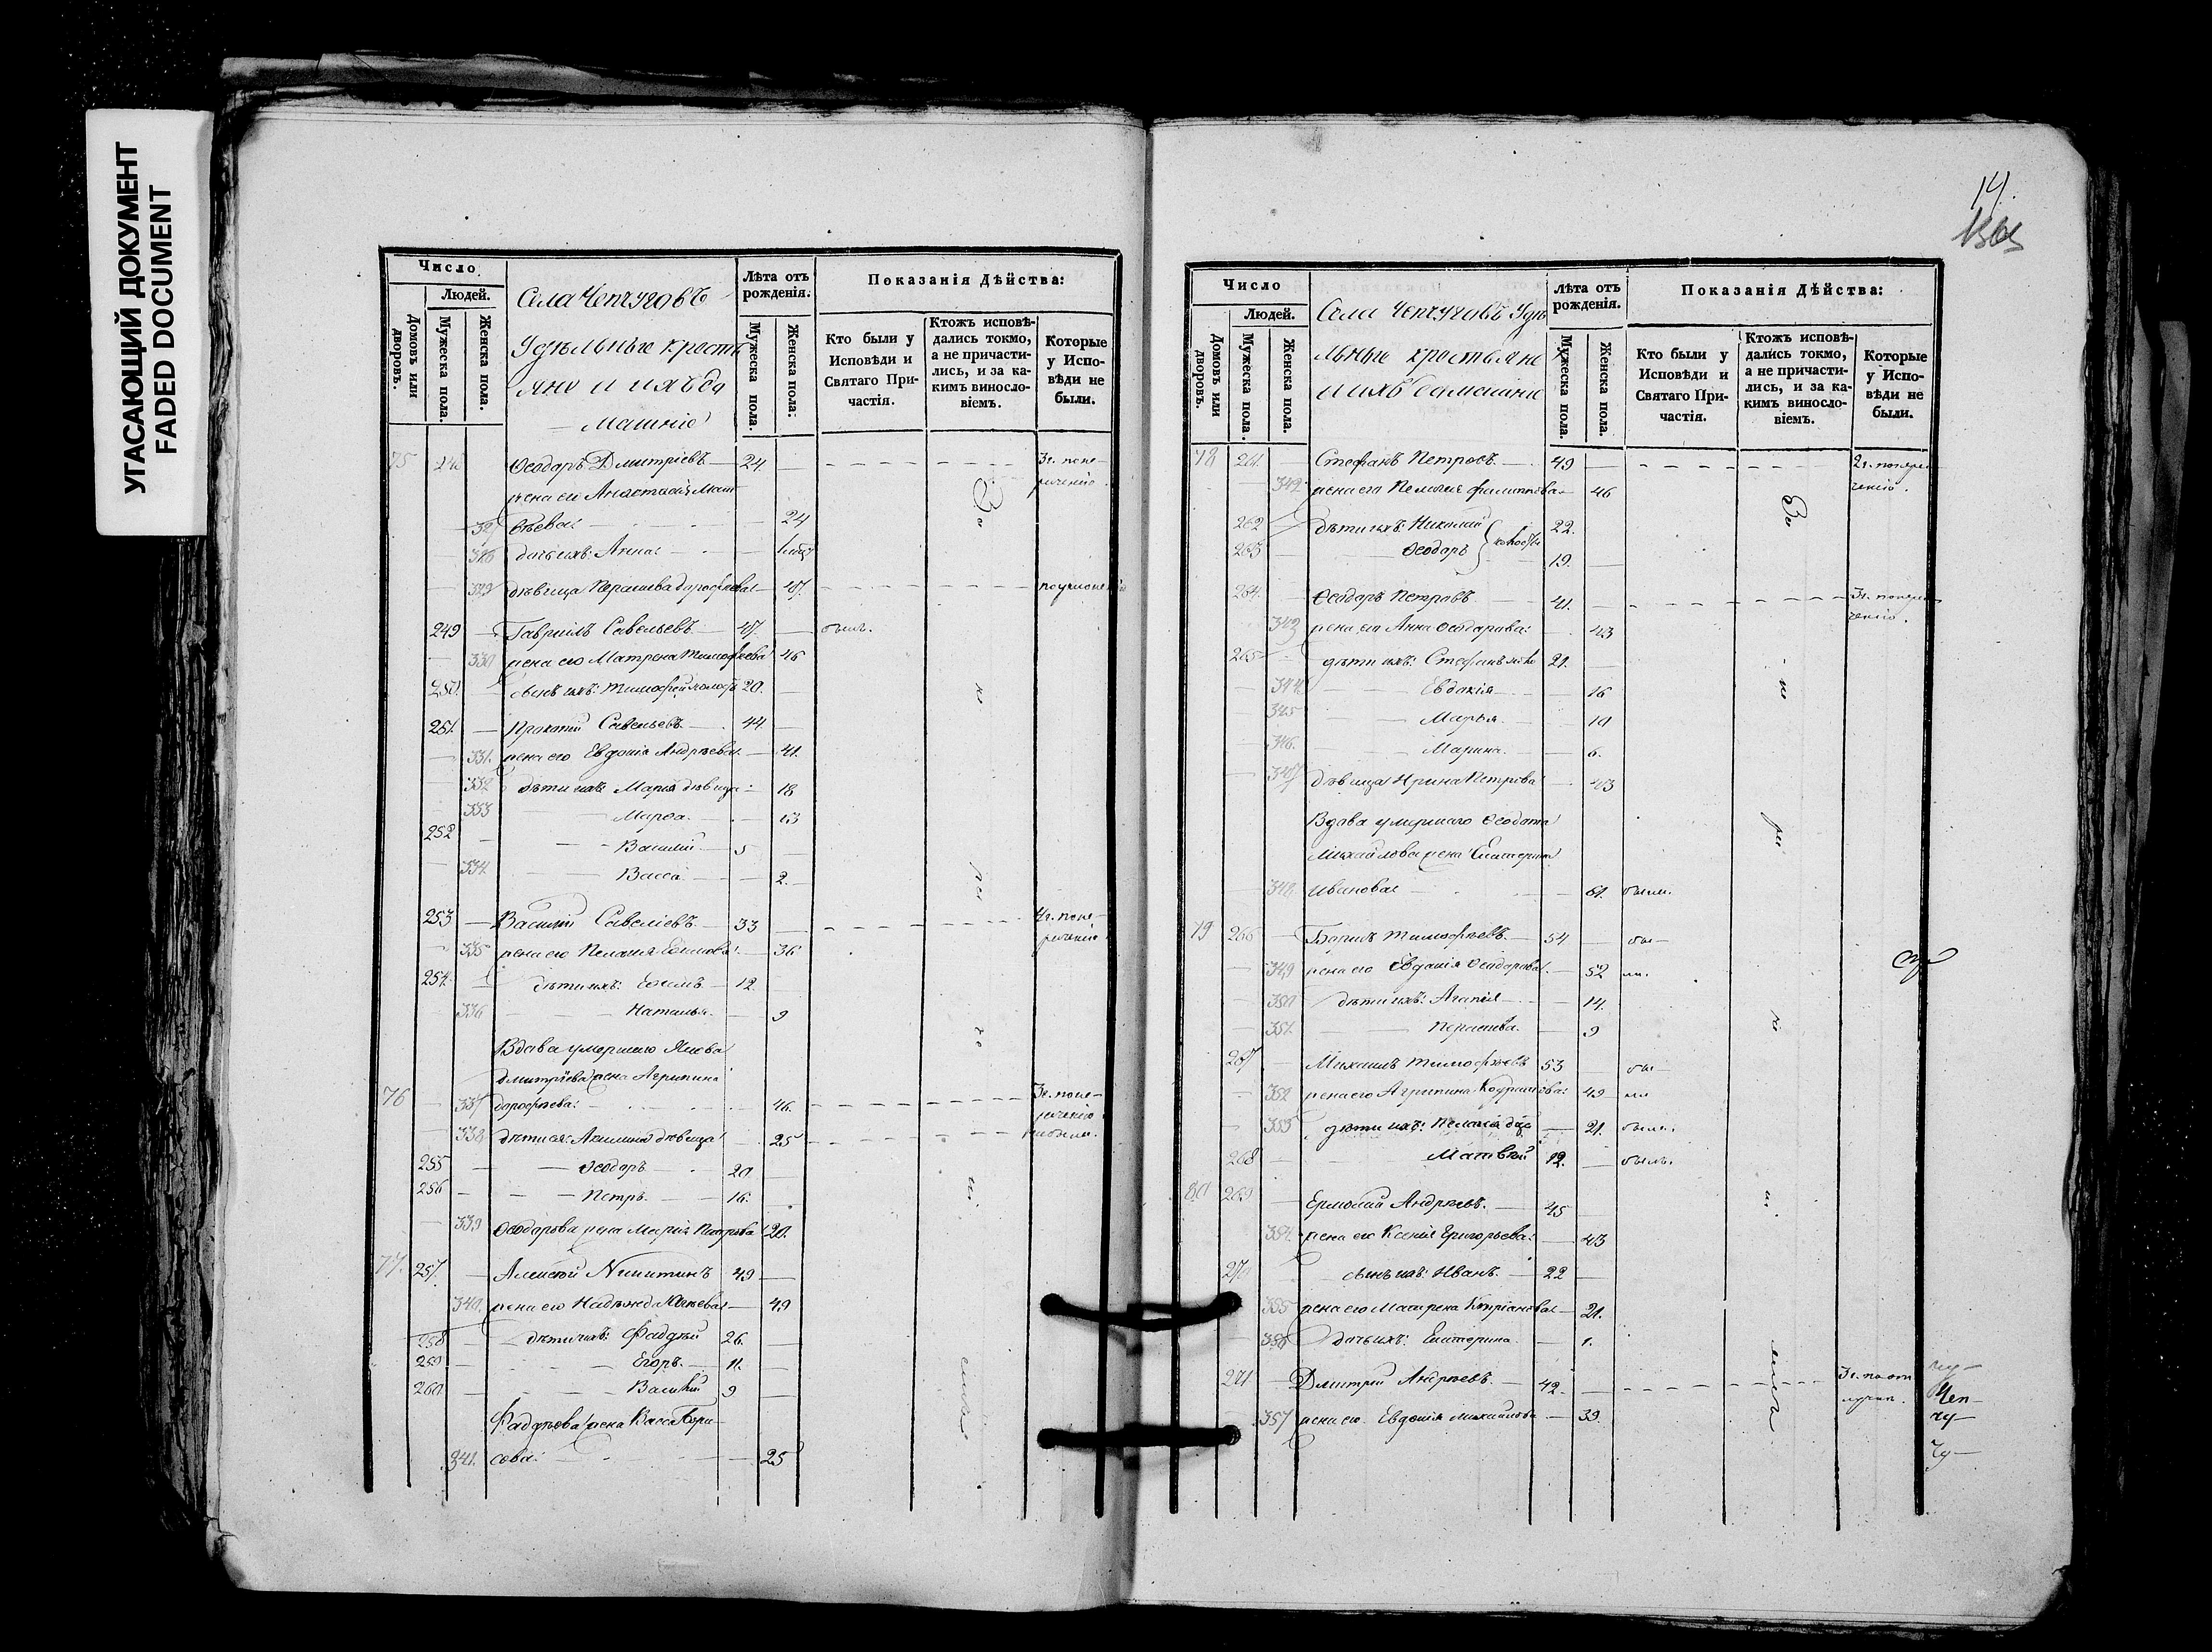 УГАСАЮЩИЙ ДОКУМЕНТ
FADED DOCUMENT
Число
Людей.
Домовъ или дворовъ.
Мужеска пола.
Женска пола.
Села Чепчуговъ
Удѣльные кресть
яне и ихъ до
машніе
Лѣта отъ рожденія.
Мужеска пола.
Женска пола.
Показанія Дѣйства:
Кто были у Исповѣди и Святаго Причастія.
Ктожъ исповѣдались токмо, а не причастились, и за какимъ винословіемъ.
Которые у Исповѣди не были.
75 248 Ѳеодоръ Дмитріевъ 24 3 г. по не
жена его Анастасія Мат
327 вѣева 24
328 дочь ихъ: Анна
329 дѣвица Параскева Дороѳеева 47
249 Гавріилъ Савельевъ 47 былъ.
330 жена его Матрена Тимоѳеева 46
250 сынъ ихъ: Тимоѳей 20.
251. Прокопій Савельевъ 44
331. жена его Евдокія Андреева 41.
332 дѣти ихъ: Марія дѣвица 18
333 Марѳа 13
252 Василій 5
334 Васса 2.
253 Василій Савеліевъ 33 4 г. по не
335 жена его Пелагія 36
254. дѣти ихъ: 12
336 Наталья 9
Вдова умершаго Якова
Дмитріева жена Агрипина
76 337 Дороѳеева 46. 3 г. по не
338 дѣти ея: Акилина дѣвица 25
255 Ѳеодоръ 20
256 Петръ 16.
339 Ѳеодорова жена Марія Петрова 20.
77. 257. Алексѣй Никитинъ 49
340. жена его Надежда 49
258 дѣти ихъ: Фаддѣй 26.
259 Егоръ 11.
260 Василій 9
Фаддѣева жена Васса Бори
341. сова 25
14.
Число
Людей.
Домовъ или дворовъ.
Мужеска пола.
Женска пола.
Села Чепчуговъ Удѣ
льные крестьяне
и ихъ домашніе
Лѣта отъ рожденія.
Мужеска пола.
Женска пола.
Показанія Дѣйства:
Кто были у Исповѣди и Святаго Причастія.
Ктожъ исповѣдались токмо, а не причастились, и за какимъ винословіемъ.
Которые у Исповѣди не были.
78 261. Стефанъ Петровъ 49 2 г.
342 жена его Пелагія Филиппова 46
262 дѣти ихъ: Николай 22.
263 Ѳеодоръ 19.
264. Ѳеодоръ Петровъ 41. 3 г.
343 жена его Анна Ѳеодорова 43
265 дѣти ихъ: Стефанъ 21.
344 Евдокія 16
345 Марья 10
346. Марина 6.
347 дѣвица Ирина Петрова 43
Вдова умершаго Ѳеодота
Михайлова жена Екатерина
348. Иванова 61. были.
79 266 Борисъ Тимоѳѣевъ 54 бы
349 жена его Евдокія Ѳеодорова 52 ли.
350 дѣти ихъ: Агапія 14.
351. Параскева 9
267 Михаилъ Тимоѳѣевъ 53 бы
352 жена его Агрипина 49 ли
353 дѣти ихъ: Пелагія 21. была.
268 Матвѣй 12. былъ.
80 269 Ермолай Андреевъ 45
354. жена его Ксенія Григорьева 43
270 сынъ ихъ: Иванъ 22
355 жена его Матрена 21.
356 дочь ихъ: Екатерина 1.
271 Дмитрій Андреевъ 42. 3 г.
357 жена его Евдокія Михайлова 39.
Чеп
чу
Чу